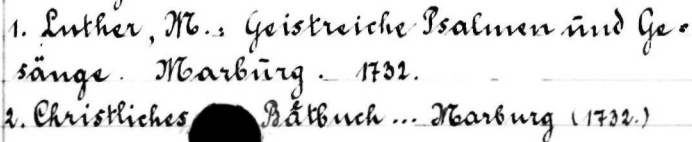 1. Luther, M.: Geistreiche Psalmen und Ge-
sänge. Marburg. 1732.
2. Christliches Bätbuch... Marburg (1732.)